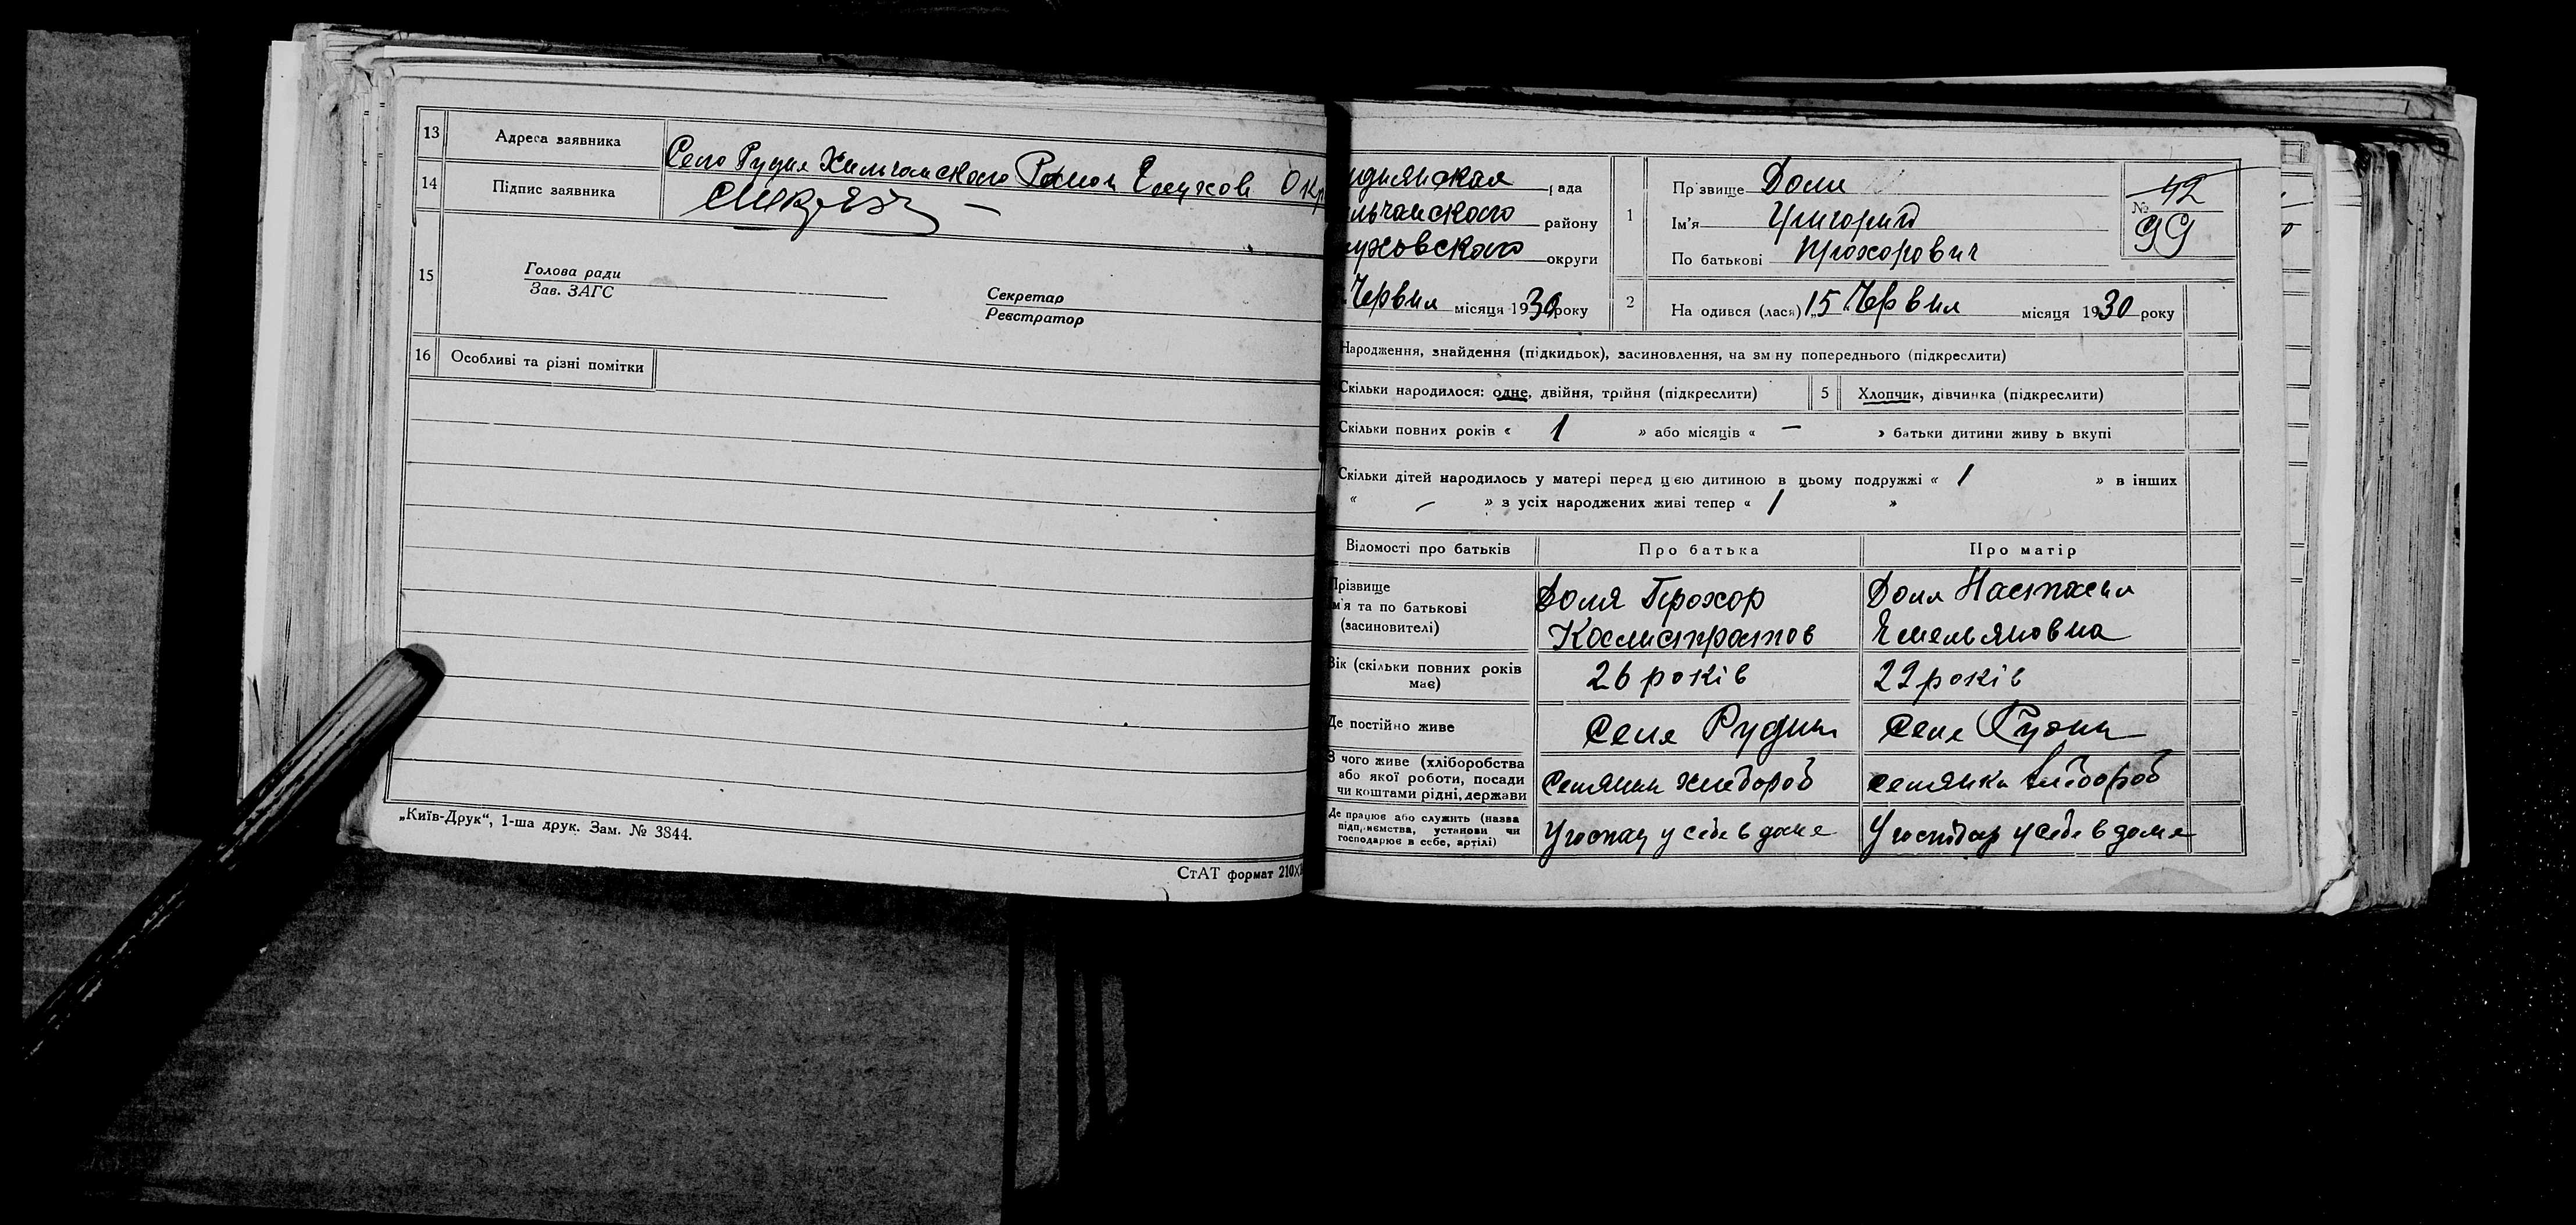 13 Адреса заявника Село Рудня Хильчанского Раиона Глухов Окр
14 Підпис заявника
15 Голова ради
Зав. ЗАГС
Секретар
Реєстратор
16 Особливі та різні помітки
„Київ-Друк“, 1-ша друк. Зам. № 3844.
СтАТ формат 210×
уднянская рада
ильчанского району
уховского округи
Червня місяця 1930 року
1 Прізвище Доля
Ім'я Григорий
По батькові Прохорович
№ 42
99
2 На одився (лася) „15“ Червня місяця 1930 року
Народження, знайдення (підкидьок), засиновлення, на зміну попереднього (підкреслити)
Скільки народилося: одне, двійня, трійня (підкреслити) 5 Хлопчик, дівчинка (підкреслити)
Скільки повних років « 1 » або місяців « — » батьки дитини живу ь вкупі
Скільки дітей народилось у матері перед цією дитиною в цьому подружжі « 1 » в інших
« — » з усіх народжених живі тепер « 1 »
Відомості про батьків Про батька Про матір
Прізвище
м'я та по батькові
(засиновителі)
Доля Прохор
Калистратов
Доля Настасия
Емельяновна
Вік (скільки повних років
має)
26 років 22 років
Де постійно живе Селе Рудни Селе Рудни
З чого живе (хліборобства
або якої роботи, посади
чи коштами рідні, держави
Селянин хлебороб селянка хлебороб
Де працює або служить (назва
підприємства, установи чи
господарює в себе, артілі)
У господ у себе в доме У господар у себе в доме